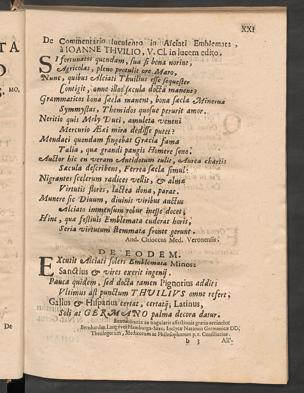 XXI
De Commentario luculento in Alciati Emblemata,
à IOANNE THVILIO, V. Cl. in lucem edito,
SI fortunatos quondam, sua si bona norint,
Agricolas, pleno protulit ore Maro,
Nunc, quibus Alciati Thuilius esse sequester
Contigit, anne illos sæcula docta manent?
Grammaticos bona sæcla manent, bona sæcla Minervæ
Symmystas, Themidos quosque perurit amor.
Neritio quis Moly Duci, amuleta veneni
Mercurio Æai mira dedisse putet?
Mendaci quondam fingebat Gracia fama
Talia, qua grandi panxis Homere sono.
Auctor hic en veram Antidotum tulit, Aurea chartis
Sæcula describens, Ferrea sæcla simul:
Nigrantes scelerum radices vellit, & alma
Virtutis flores, lactea dona, parat.
Munere sic Divum, divinis viribus auctus
Alciato immensum robur inesse docet;
Hinc, qua festivis Emblemata cuderat horis,
Seria virtutum Stemmata fronte gerunt.
And. Chioccus Med. Veronensis.
DE EODEM.
EXcutit Alciati soleri Emblemata Minos:
Sanctius & vires exerit ingenij.
Pauca quidem, sed docta tamen Pignorius addit:
Vltimus ast punctum THUILIVS omne refert;
Gallus & Hispanus certat, certatq; Latinus,
Soli at GERMANO palma decora datur.
b 3
All'-
TA
MO.
De